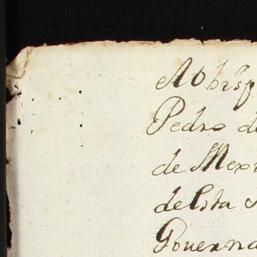 Al Obisp
Pedro de
de Mexi
de esta
Governa